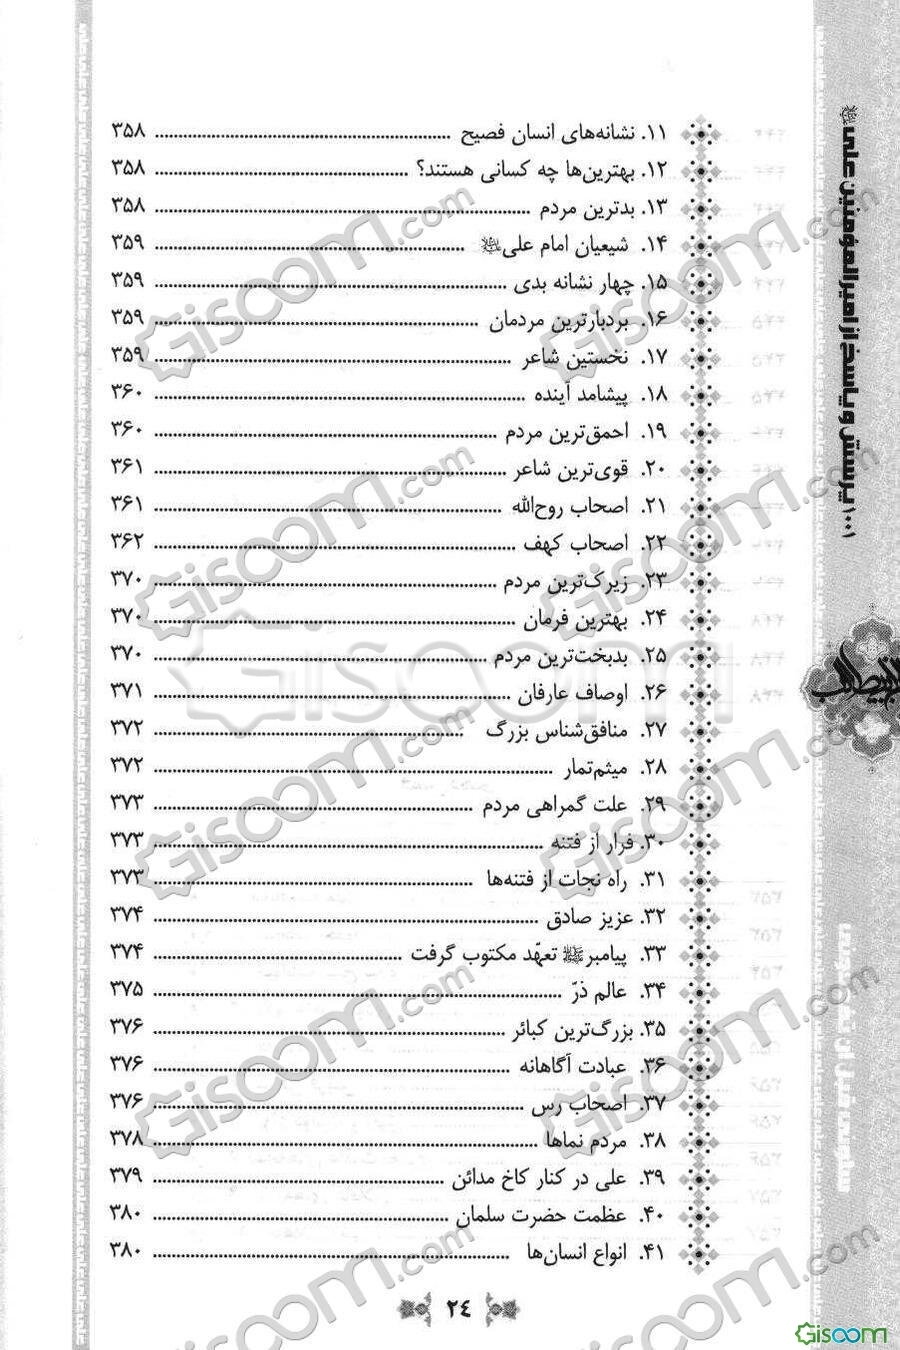 ۱۰۰۱ پرسش و پاسخ از امیرالمؤمنین علی
۱۱. نشانه‌های انسان فصیح ۳۵۸
۱۲. بهترین‌ها چه کسانی هستند؟ ۳۵۸
۱۳. بدترین مردم ۳۵۸
۱۴. شیعیان امام علی ۳۵۹
۱۵. چهار نشانه بدی ۳۵۹
۱۶. بردبارترین مردمان ۳۵۹
۱۷. نخستین شاعر ۳۵۹
۱۸. پیشامد آینده ۳۶۰
۱۹. احمق‌ترین مردم ۳۶۰
۲۰. قوی‌ترین شاعر ۳۶۱
۲۱. اصحاب روح‌الله ۳۶۱
۲۲. اصحاب کهف ۳۶۲
۲۳. زیرک‌ترین مردم ۳۷۰
۲۴. بهترین فرمان ۳۷۰
۲۵. بدبخت‌ترین مردم ۳۷۰
۲۶. اوصاف عارفان ۳۷۱
۲۷. منافق‌شناس بزرگ ۳۷۲
۲۸. میثم‌تمار ۳۷۲
۲۹. علت گمراهی مردم ۳۷۳
۳۰. فرار از فتنه ۳۷۳
۳۱. راه نجات از فتنه‌ها ۳۷۳
۳۲. عزیز صادق ۳۷۴
۳۳. پیامبر ﷺ تعهّد مکتوب گرفت ۳۷۴
۳۴. عالم ذرّ ۳۷۵
۳۵. بزرگ‌ترین کبائر ۳۷۶
۳۶. عبادت آگاهانه ۳۷۶
۳۷. اصحاب رس ۳۷۶
۳۸. مردم نماها ۳۷۸
۳۹. علی در کنار کاخ مدائن ۳۷۹
۴۰. عظمت حضرت سلمان ۳۸۰
۴۱. انواع انسان‌ها ۳۸۰
۲٤
Gisoom